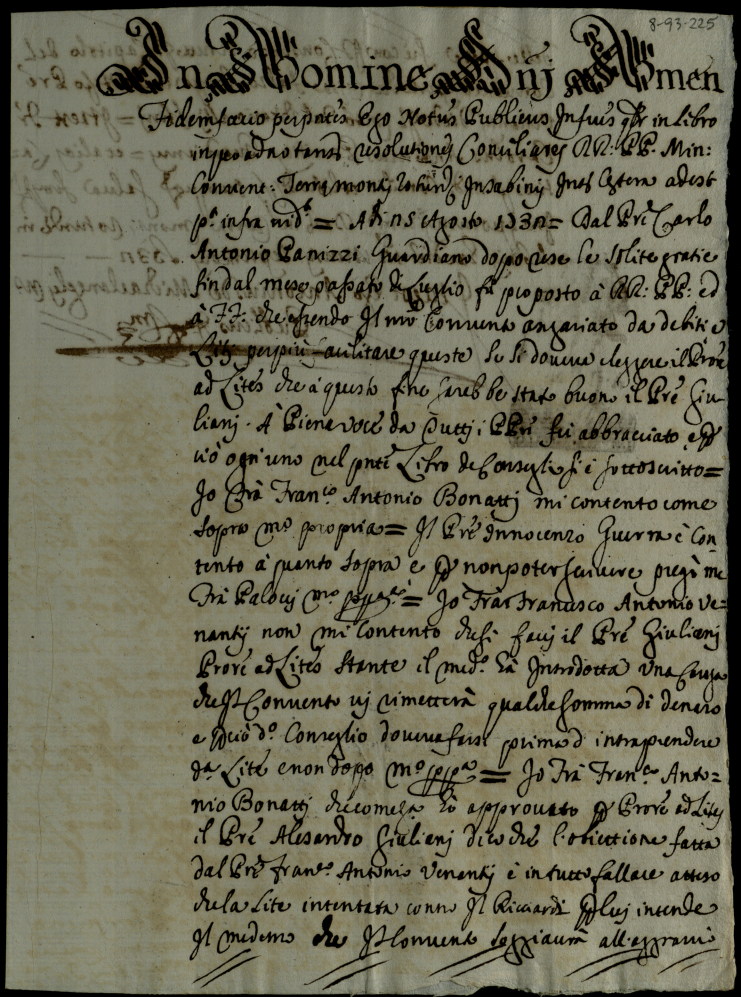 8-93-225
In Nomine Dnj Amen
Fidem facio per pntes Ego Notus Publicus Infrus qtr in Libro
in quo adnotantr resolutiones Conciliares RR: PP. Min:
Convent: Terre montis in Sabinis Inter Cetera adest
pt infra vidt = Adi 15 Agosto 1731 = Dal Pre Carlo
Antonio Panizzi Guardiano dopo rese le solite gratie
fin dal mese passato di Luglio fu proposto à RR: PP: ed
à FF. che essendo Il nro Convento angariato da debiti e
Liti per più facilitare queste se si doveva eleggere il Prore
ad Lites che à questo fine sarebbe stato buono il Pre Giu
lianj. A Piena voce da Tuttj i PPri fù abbracciato e p
ciò ogn'uno nel pnte Libro de Consegli si è sottoscritto =
Io Frà Franco Antonio Bonattj mi contento come
sopra mo propria = Il Pre Innocenzo Guerra è Con
tento à quanto sopra e p non poter scrivere pregò me
Frà Palocij mo proppa = Io Frat Francesco Antonio Ve=
nantij non mi Contento che si faccj il Pre Giulianj
Prore ad Lites stante il medo hà Introdotta una Causa
che Il Convento vi rimetterà qualche somma di denaro
e p ciò do Consiglio doveva farsi prima d'intraprendere
da Lite e non dopo mo pp = Io Frà Franco Anto=
nio Bonattj che come hò approvato p Prore ad Lites
il Pre Alesandro Giulianj dico che l'obiettione fatta
dal Pre Franco Antonio Venantij è in tutto fallace atteso
che la Lite intentata contro Il Ricciardi p lui intende
Il medemo che Il Convento soggiaccia all'aggravio